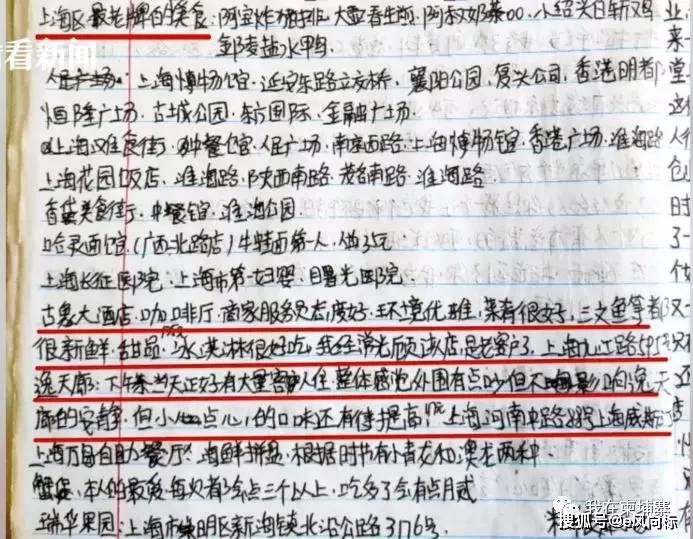 看看新闻
上海区最老牌的美食:阿宝炸猪排.大壶春生煎.阿 奶茶00.小绍兴白斩鸡
盐水鸭
人民广场.上海博物馆.延安东路立交桥.襄阳公园.复兴公园.香港明都
恒隆广场.古城公园.东方国际.金融广场.
上海 美食街. 餐馆.人民广场.南京西路.上海博物馆.香港广场.淮海路
上海花园饭店.淮海路.陕西南路.茂名南路.淮海路.
美食街.中餐馆.淮海公园.
哈灵面馆.(广西北路店)牛 面第一人.做 元
上海长征医院.上海市第一妇婴.曙光医院.
古象大酒店.咖啡厅.商家服务员态度好.环境优雅.菜肴很好.三文鱼等都
很新鲜.甜品.冰淇淋很好吃.我经常光顾该店.是老客户了.上海九江路595
逸天廊:下午茶当天正好有大量客人住.整体感觉外围有点吵但不 影响逸天
廊的安静.但小 点心.的口味还有待提高. 上海河南中路 号上海威斯
上海万 自助餐厅:海鲜拼盘.根据时节有小青龙和澳龙两种
蟹 .本人的最爱.每次都会点三个以上.吃多了会有点月贰
瑞华果园:上海市崇明区新海镇北沿公路3176号.
业
来一
堂
人
创
时
了一
仅
只
天
店
我在柬埔寨
搜狐号@B风向标